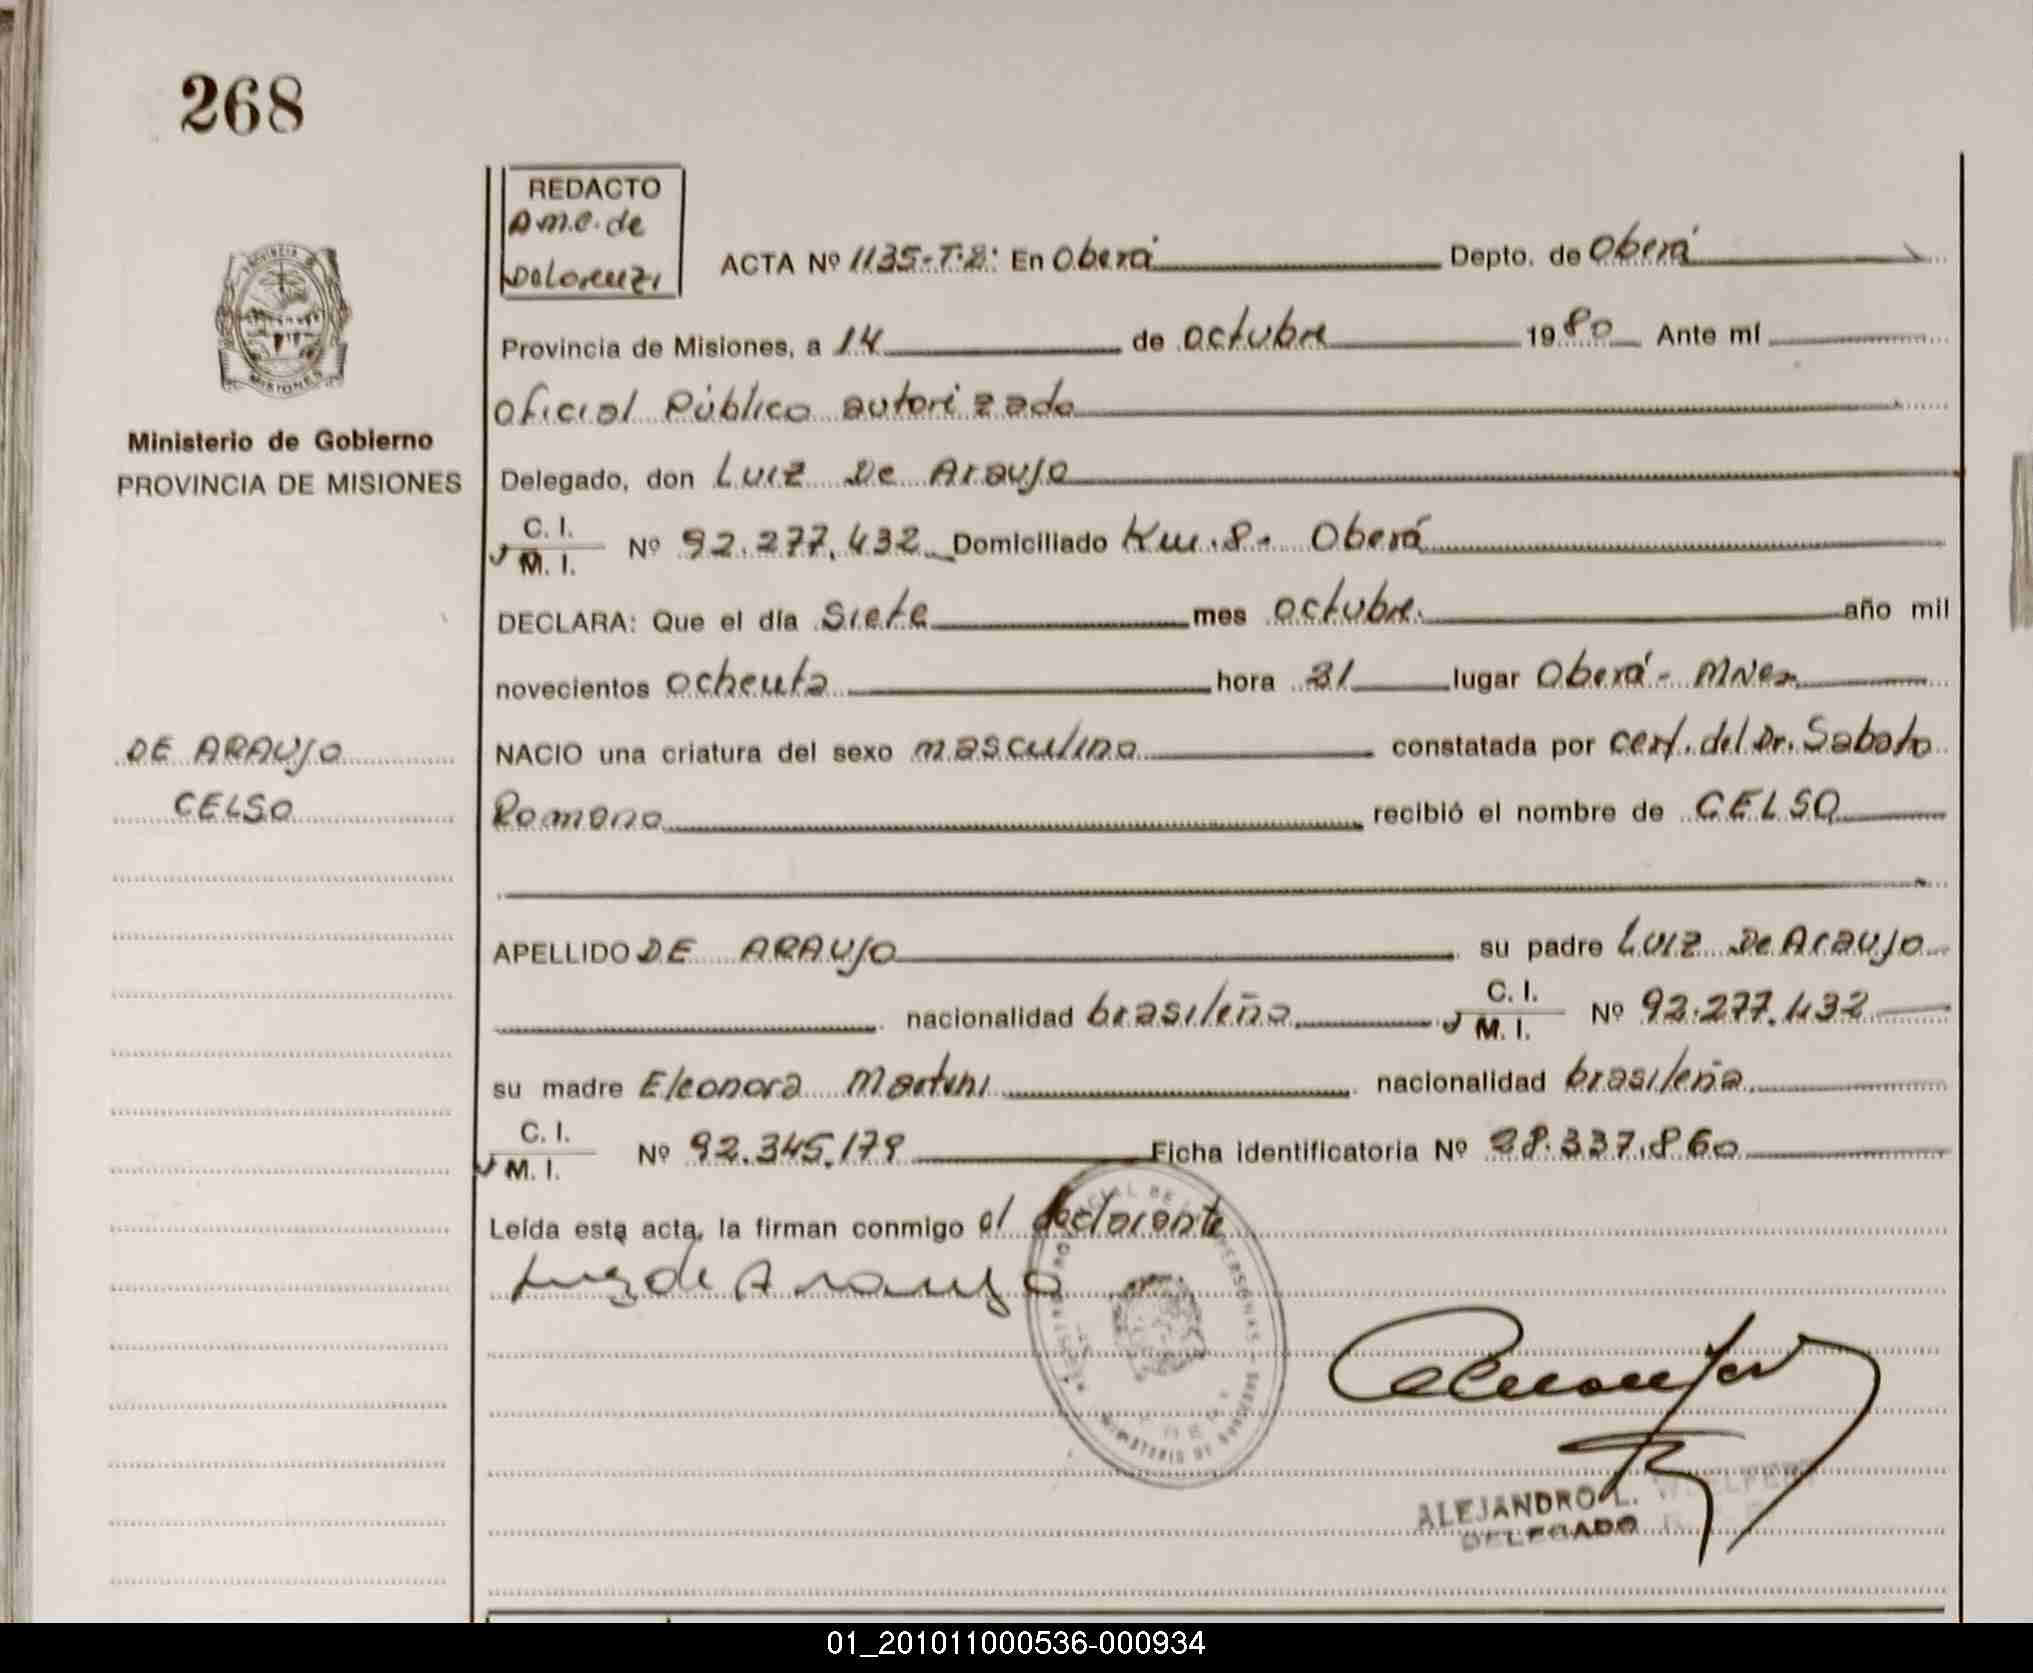 268
REDACTO
A.M.C. de
DeLorenzi
ACTA Nº 1135-T-2: En Oberá Depto. de Oberá
Provincia de Misiones, a 14 de octubre 1980 Ante mí
Oficial Público autorizado
Ministerio de Gobierno
PROVINCIA DE MISIONES
Delegado, don Luiz De Araujo
C. I.
M. I. Nº 92.277.432 Domiciliado Km. 8- Oberá
DECLARA: Que el día siete mes octubre año mil
novecientos ochenta hora 21 lugar Oberá - Mnes
DE ARAUJO
CELSO
NACIO una criatura del sexo masculino constatada por cert. del Dr. Sabato
Romano recibió el nombre de CELSO
APELLIDO DE ARAUJO su padre Luiz De Araujo
nacionalidad brasileña C. I.
M. I. Nº 92.277.432
su madre Eleonora Martini nacionalidad brasileña
C. I.
M. I. Nº 92.345.179 Ficha identificatoria Nº 28.337.860
Leída esta acta, la firman conmigo el declarante
Luiz de Araujo
ALEJANDRO L.
DELEGADO
01_201011000536-000934